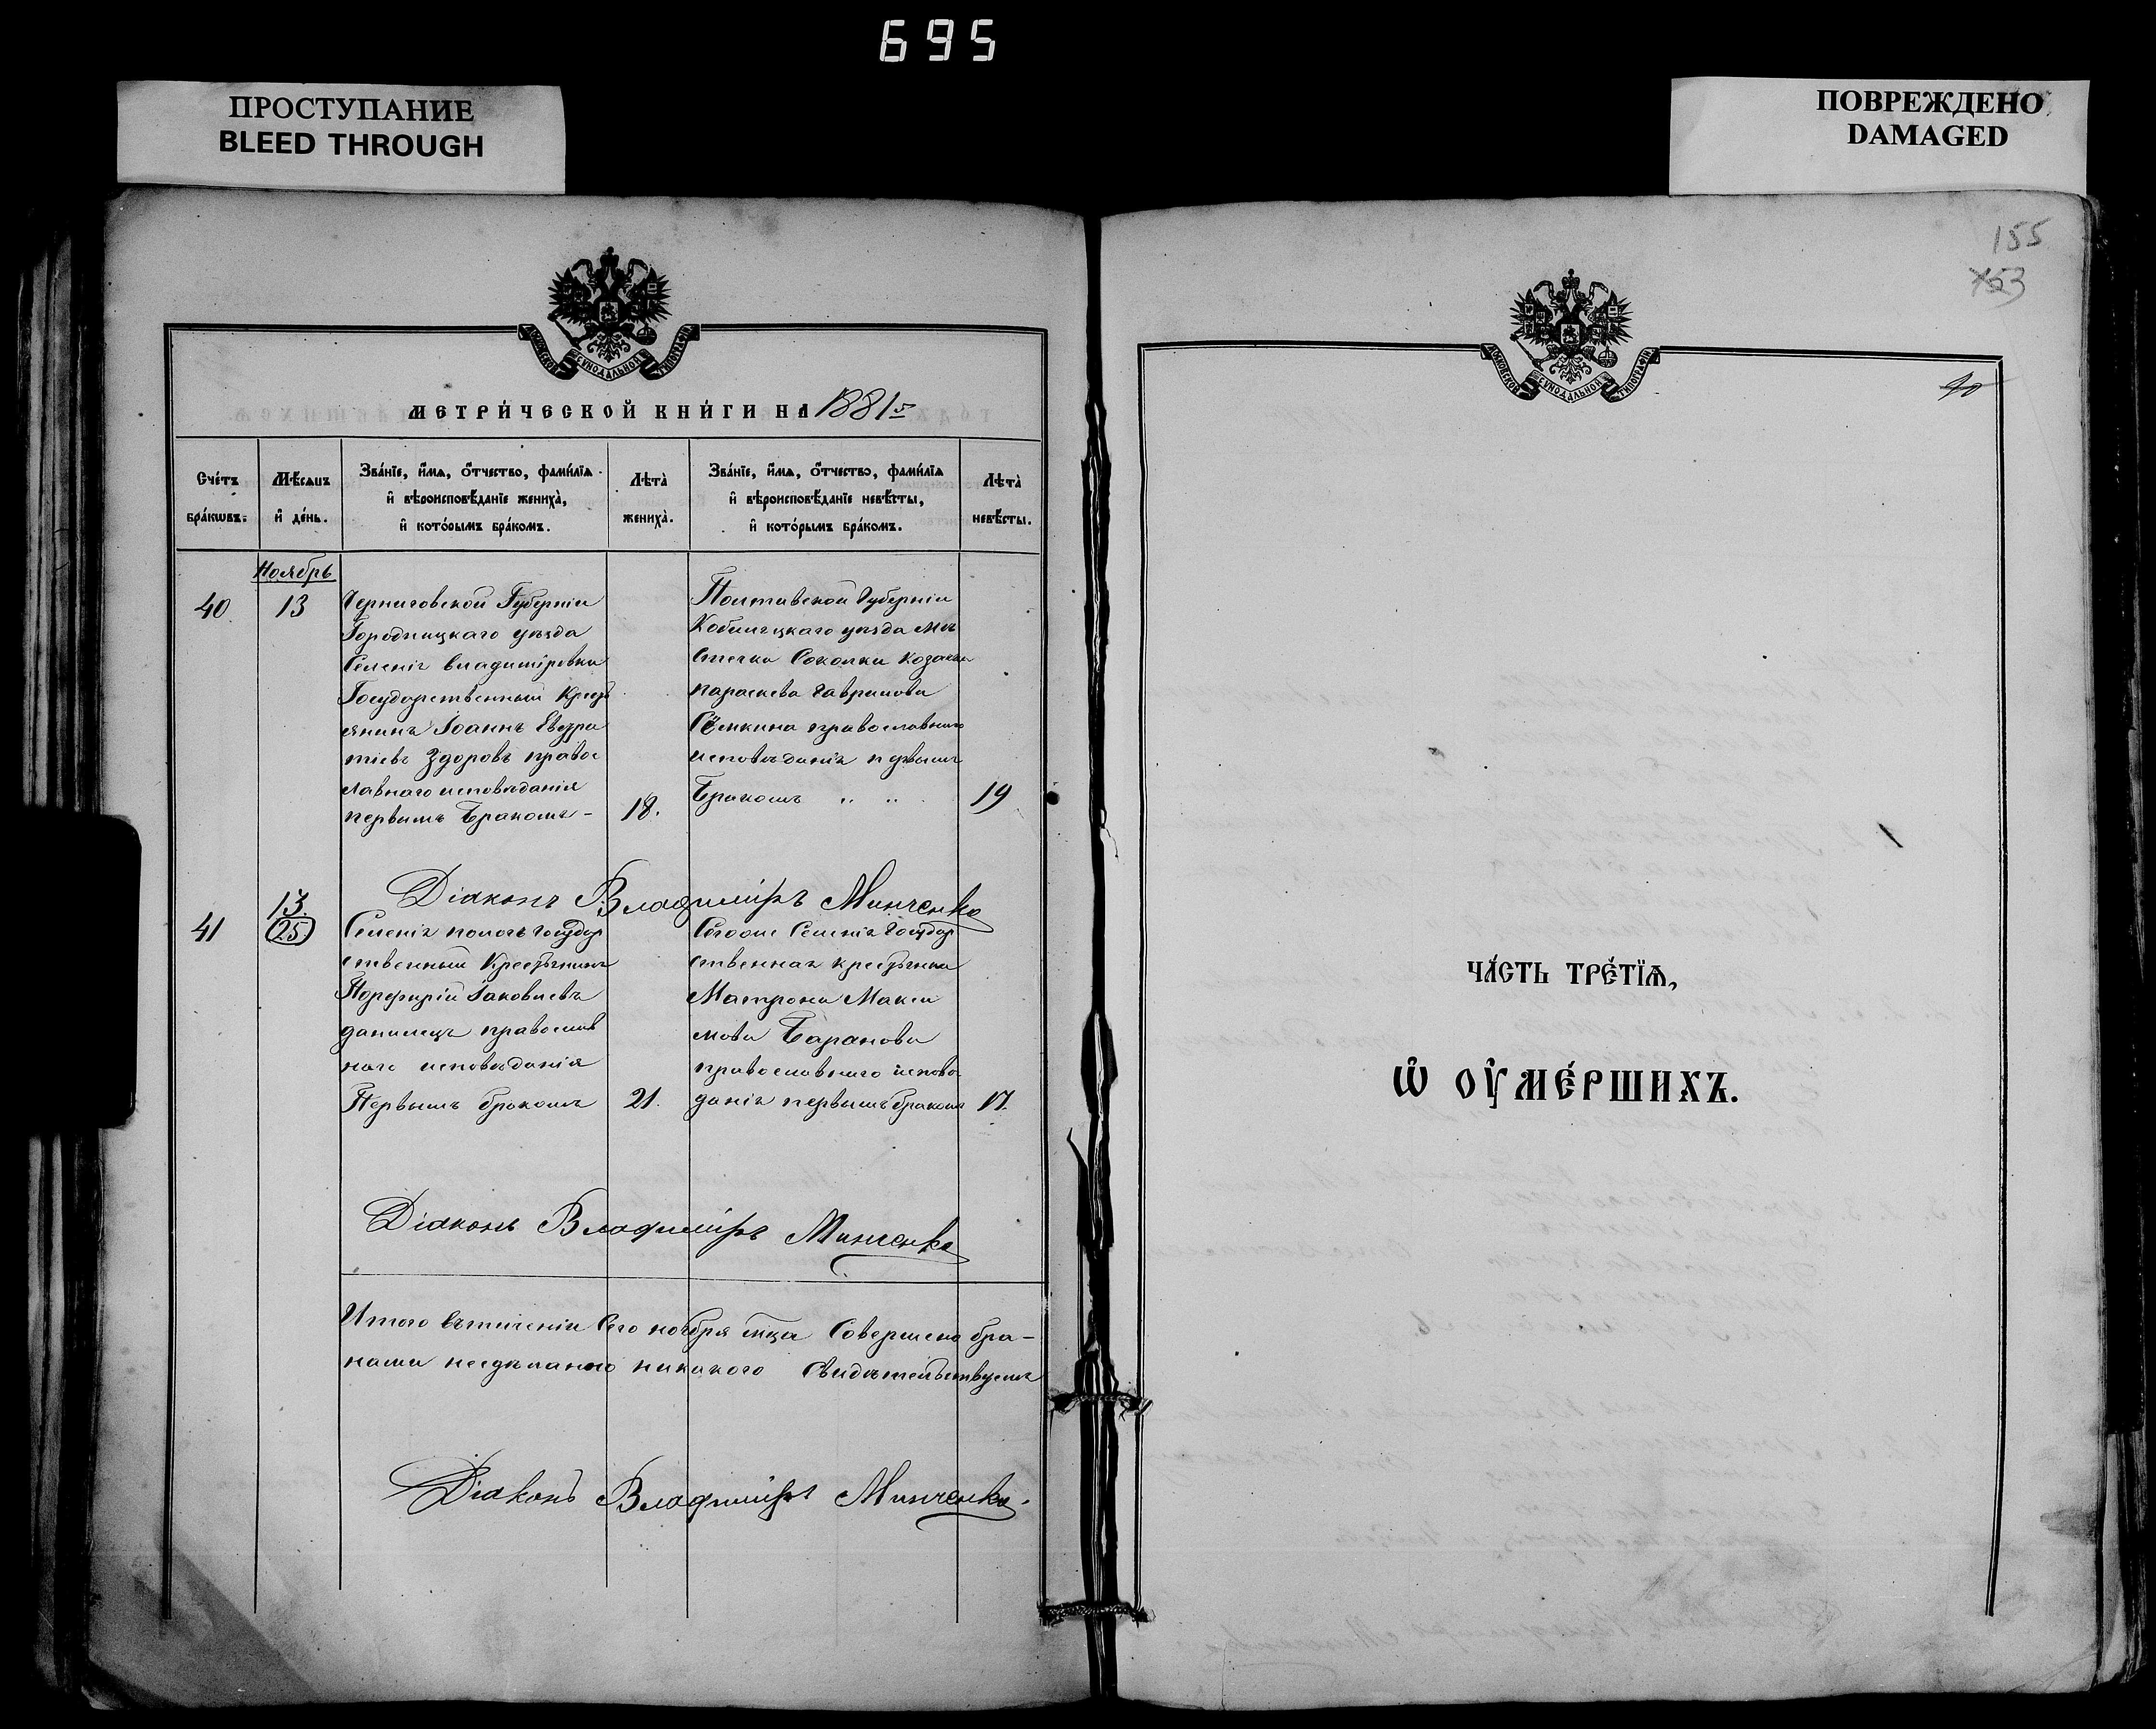 695
ПРОСТУПАНИЕ
BLEED THROUGH
ПОВРЕЖДЕНО
DAMAGED
МОСКОВСКОЙ СѴНОДАЛЬНОЙ ТИПОГРАФІИ
МЕТРИ́ЧЕСКОЙ КНИ́ГИ НА 1881
Сче́тъ бра́кѡвъ.
Мѣ́сѧцъ и҆ де́нь.
Зва́нїе, и҆́мѧ, ѻ҆́тчество, фами́лїѧ и҆ вѣроисповѣ́данїе жениха̀, и҆ кото́рымъ бра́комъ.
Лѣта̀ жениха̀.
Зва́нїе, и҆́мѧ, ѻ҆́тчество, фами́лїѧ и҆ вѣроисповѣ́данїе невѣ́сты, и҆ кото́рымъ бра́комъ.
Лѣта̀ невѣ́сты.
Ноябрь
40
13
Черниговской Губерніи
Городницкаго уѣзда
Селенія Владимировки
Государственный Кресть
янинъ Іоаннъ Евстра
тіевъ Здоровъ правос
лавнаго исповѣданія
первымъ Бракомъ -
18.
Полтавской Губерніи
Кобеляцкаго уѣзда Мѣ
стечка Соколки козачка
Параскева Гаврилова
Сёмкина православнаго
исповѣданія первымъ
Бракомъ „ „
19
Діаконъ Владиміръ Минченко
41
13.
25
Селенія Пологъ Государ
ственный Крестьянинъ
Порфирій Іаковлевъ
Данилецъ православ
наго исповѣданія
Первымъ бракомъ
21.
Сегоже Селенія Государ
ственная крестьянка
Матрона Макси
мова Баранова
православнаго исповѣ
данія первымъ бракомъ
17.
Діаконъ Владиміръ Минченко
Итого въ теченіи Сего ноября м̃ца Совершено бра-
никакого Свидѣтельствуемъ
Діаконъ Владиміръ Минченко.
155
153
МОСКОВСКОЙ СѴНОДАЛЬНОЙ ТИПОГРАФІИ
ЧА́СТЬ ТРЕ́ТЇѦ,
Ѡ҆ ОУ҆МЕ́РШИХЪ.